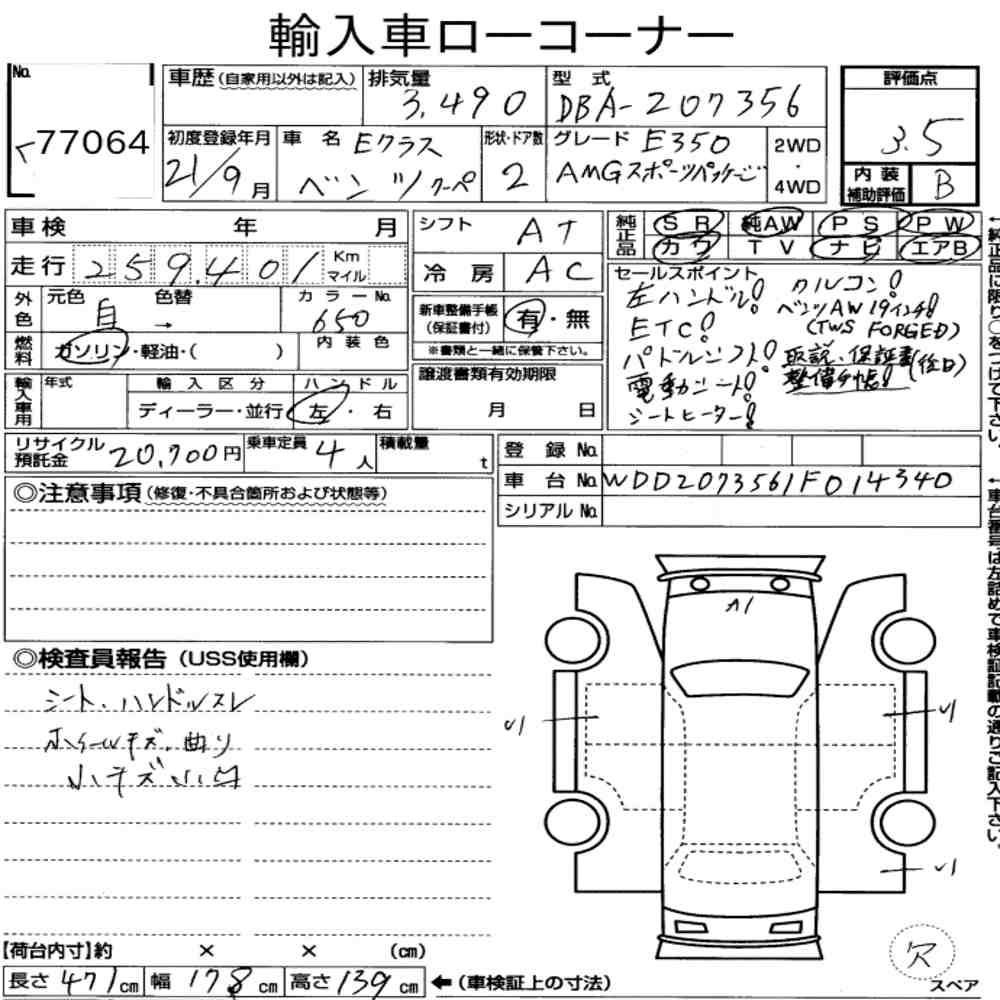 輸入車ローコーナー
No.
77064
車歴(自家用以外は記入)
排気量
3,490
型式
DBA-207356
評価点
3.5
初度登録年月
21/9月
車名
Eクラス
ベンツクーペ
形状・ドア数
2
グレード E350
AMGスポーツパッケージ
2WD
・
4WD
内装
補助評価
B
車検 年 月
シフト AT
純正品
SR 純AW PS PW
カワ TV ナビ エアB
走行 259,401 Km マイル
冷房 AC
セールスポイント
左ハンドル!
ETC!
パドルシフト!
電動シート!
シートヒーター!
クルコン!
ベンツAW19インチ!
(TWS FORGED)
取説、保証書
整備手帳!(後日)
外色
元色 白 色替 →
カラーNo. 650
新車整備手帳
(保証書付)
有・無
※書類と一緒に保管下さい。
燃料
ガソリン・軽油・( )
内装色
輸入車用
年式
輸入区分
ディーラー・並行
ハンドル
左・右
譲渡書類有効期限
月 日
リサイクル
預託金 20,700円
乗車定員 4人
積載量 t
登録No.
車台No. WDD2073561F014340
シリアルNo.
◎注意事項(修復・不具合箇所および状態等)
◎検査員報告(USS使用欄)
シート、ハンドルスレ
ホイールキズ、曲り
小キズ小凹
A1
【荷台内寸】約 × × (cm)
長さ 471cm 幅 178cm 高さ 139cm ←(車検証上の寸法)
R
スペア
←純正品に限り○をつけて下さい。
←車台番号は左詰めで車検証記載の通りご記入下さい。